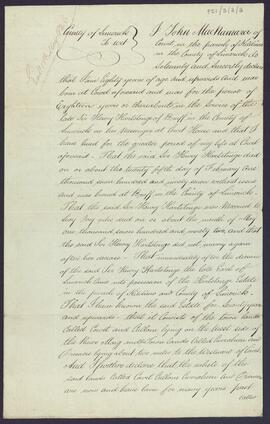 County of Limerick
To wit
I John MacNamara of
Court in the parish of Kildimo
in the County of Limerick, Do
Solemnly and Sincerely declare
that I am Eighty years of age and upwards that I was
born at Court aforesaid and was for the period of
Eighteen years or thereabouts in the service of the
late Sir Henry Hartstonge of Bruff in the County of
Limerick as his Steward at Court House and that I
have lived for the greater period of my life at Court
aforesaid. That the said Sir Henry Hartstonge died
on or about the twenty fifth day of February One
thousand seven hundred and ninety seven without issue
and was buried at Bruff in the County of Limerick.
That the said Sir Henry Hartstonge was Married to
Lucy Pery who died on or about the Month of May
one thousand seven hundred and ninety two and that
the said Sir Henry Hartstonge did not marry again
after her decease. That immediately after the demise
of the said Sir Henry Hartstonge the late Earl of
Limerick came into possession of the Hartstonge Estate
in the parish of Kildimo and County of Limerick.
That I have known the said Estate for
and upwards. That it Consists of the town lands
Called Court and Cullam lying on the East side of
the River
lying about two miles to the Westward of Court.
And I further declare that the whole of the
said lands Called Court Cullam
are now and have been for many years past
called